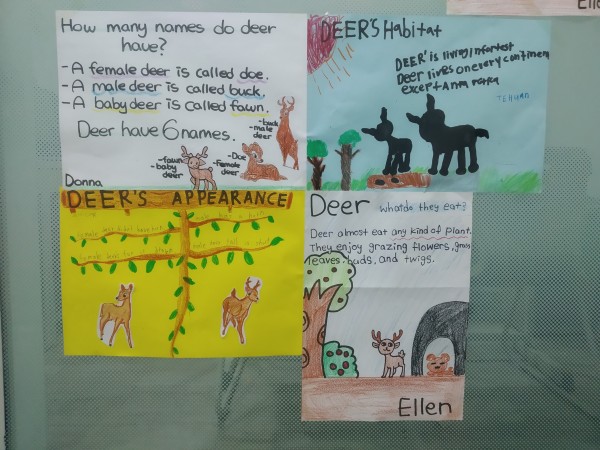 How many names do deer
have?
-A female deer is called doe.
-A male deer is called buck.
-A baby deer is called fawn.
Deer have 6 names.
-buck
-male
deer
-Doe
-Female
deer
-fawn
-baby
deer
Donna
DEER'S Habitat
DEER' is living in forest
Deer lives on every continent
except
TEHUAN
DEER'S APPEARANCE
Deer whatdo they eat?
Deer almost eat any kind of plant.
They enjoy grazing flowers, grass
leaves, buds, and twigs.
Ellen